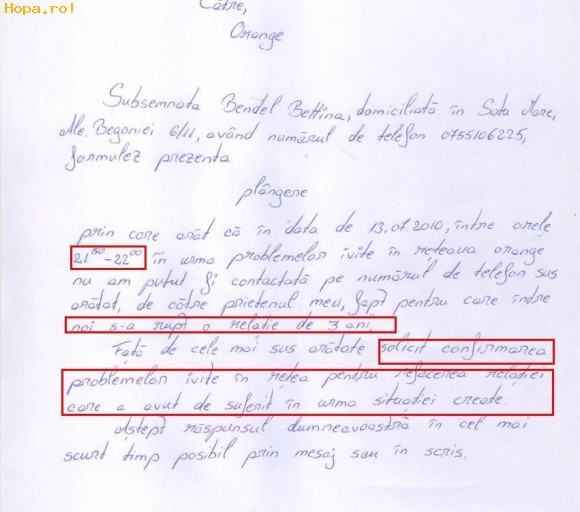 Hopa.ro!
Către,
Orange
Subsemnata Bendel Bettina, domiciliată în Satu Mare,
Ale. Begoniei 6/11, având numărul de telefon 0755106225,
formulez prezenta
plângere
prin care arăt că în data de 13.07.2010, între orele
21⁰⁰-22⁰⁰ în urma problemelor ivite în rețeaua orange
nu am putut fi contactată pe numărul de telefon sus
arătat, de către prietenul meu, fapt pentru care între
noi s-a rupt o relație de 3 ani.
Față de cele mai sus arătate solicit confirmarea
problemelor ivite în rețea pentru refacerea relației
care a avut de suferit în urma situației create.
Aștept răspunsul dumneavoastră în cel mai
scurt timp posibil prin mesaj sau în scris.